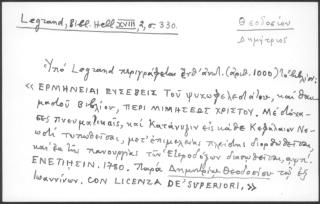 Legrand, Bibl. Hell. XVIII, 2, σ. 330.
Θεοδοσίου
Δημήτριος
Ὑπὸ Legrand περιγράφεται ἐνθ' ἀνωτ. (ἀριθ. 1000) τὸ βιβλίον:
« ΕΡΜΗΝΕΙΑΙ ΕΥΣΕΒΕΙΣ Τοῦ ψυχωφελεστάτου, καὶ θαυ-
μαστοῦ Βιβλίου, ΠΕΡΙ ΜΙΜΗΣΕΩΣ ΧΡΙΣΤΟΥ. Μὲ
πνευματικαῖς, καὶ Κατάνυξιν εἰς κάθε Κεφάλαιον Νε-
ωστὶ τυπωθεῖσαι, μετ' ἐπιμελείας πλείστης διορθωθεῖσαι,
τῶν Ἑτεροδόξων διασωθεῖσαι, αψπ'.
ΕΝΕΤΙΗΣΙΝ. 1780. Παρὰ Δημητρίῳ Θεοδοσίου τῷ ἐξ
Ἰωαννίνων. CON LICENZA DE' SUPERIORI, »